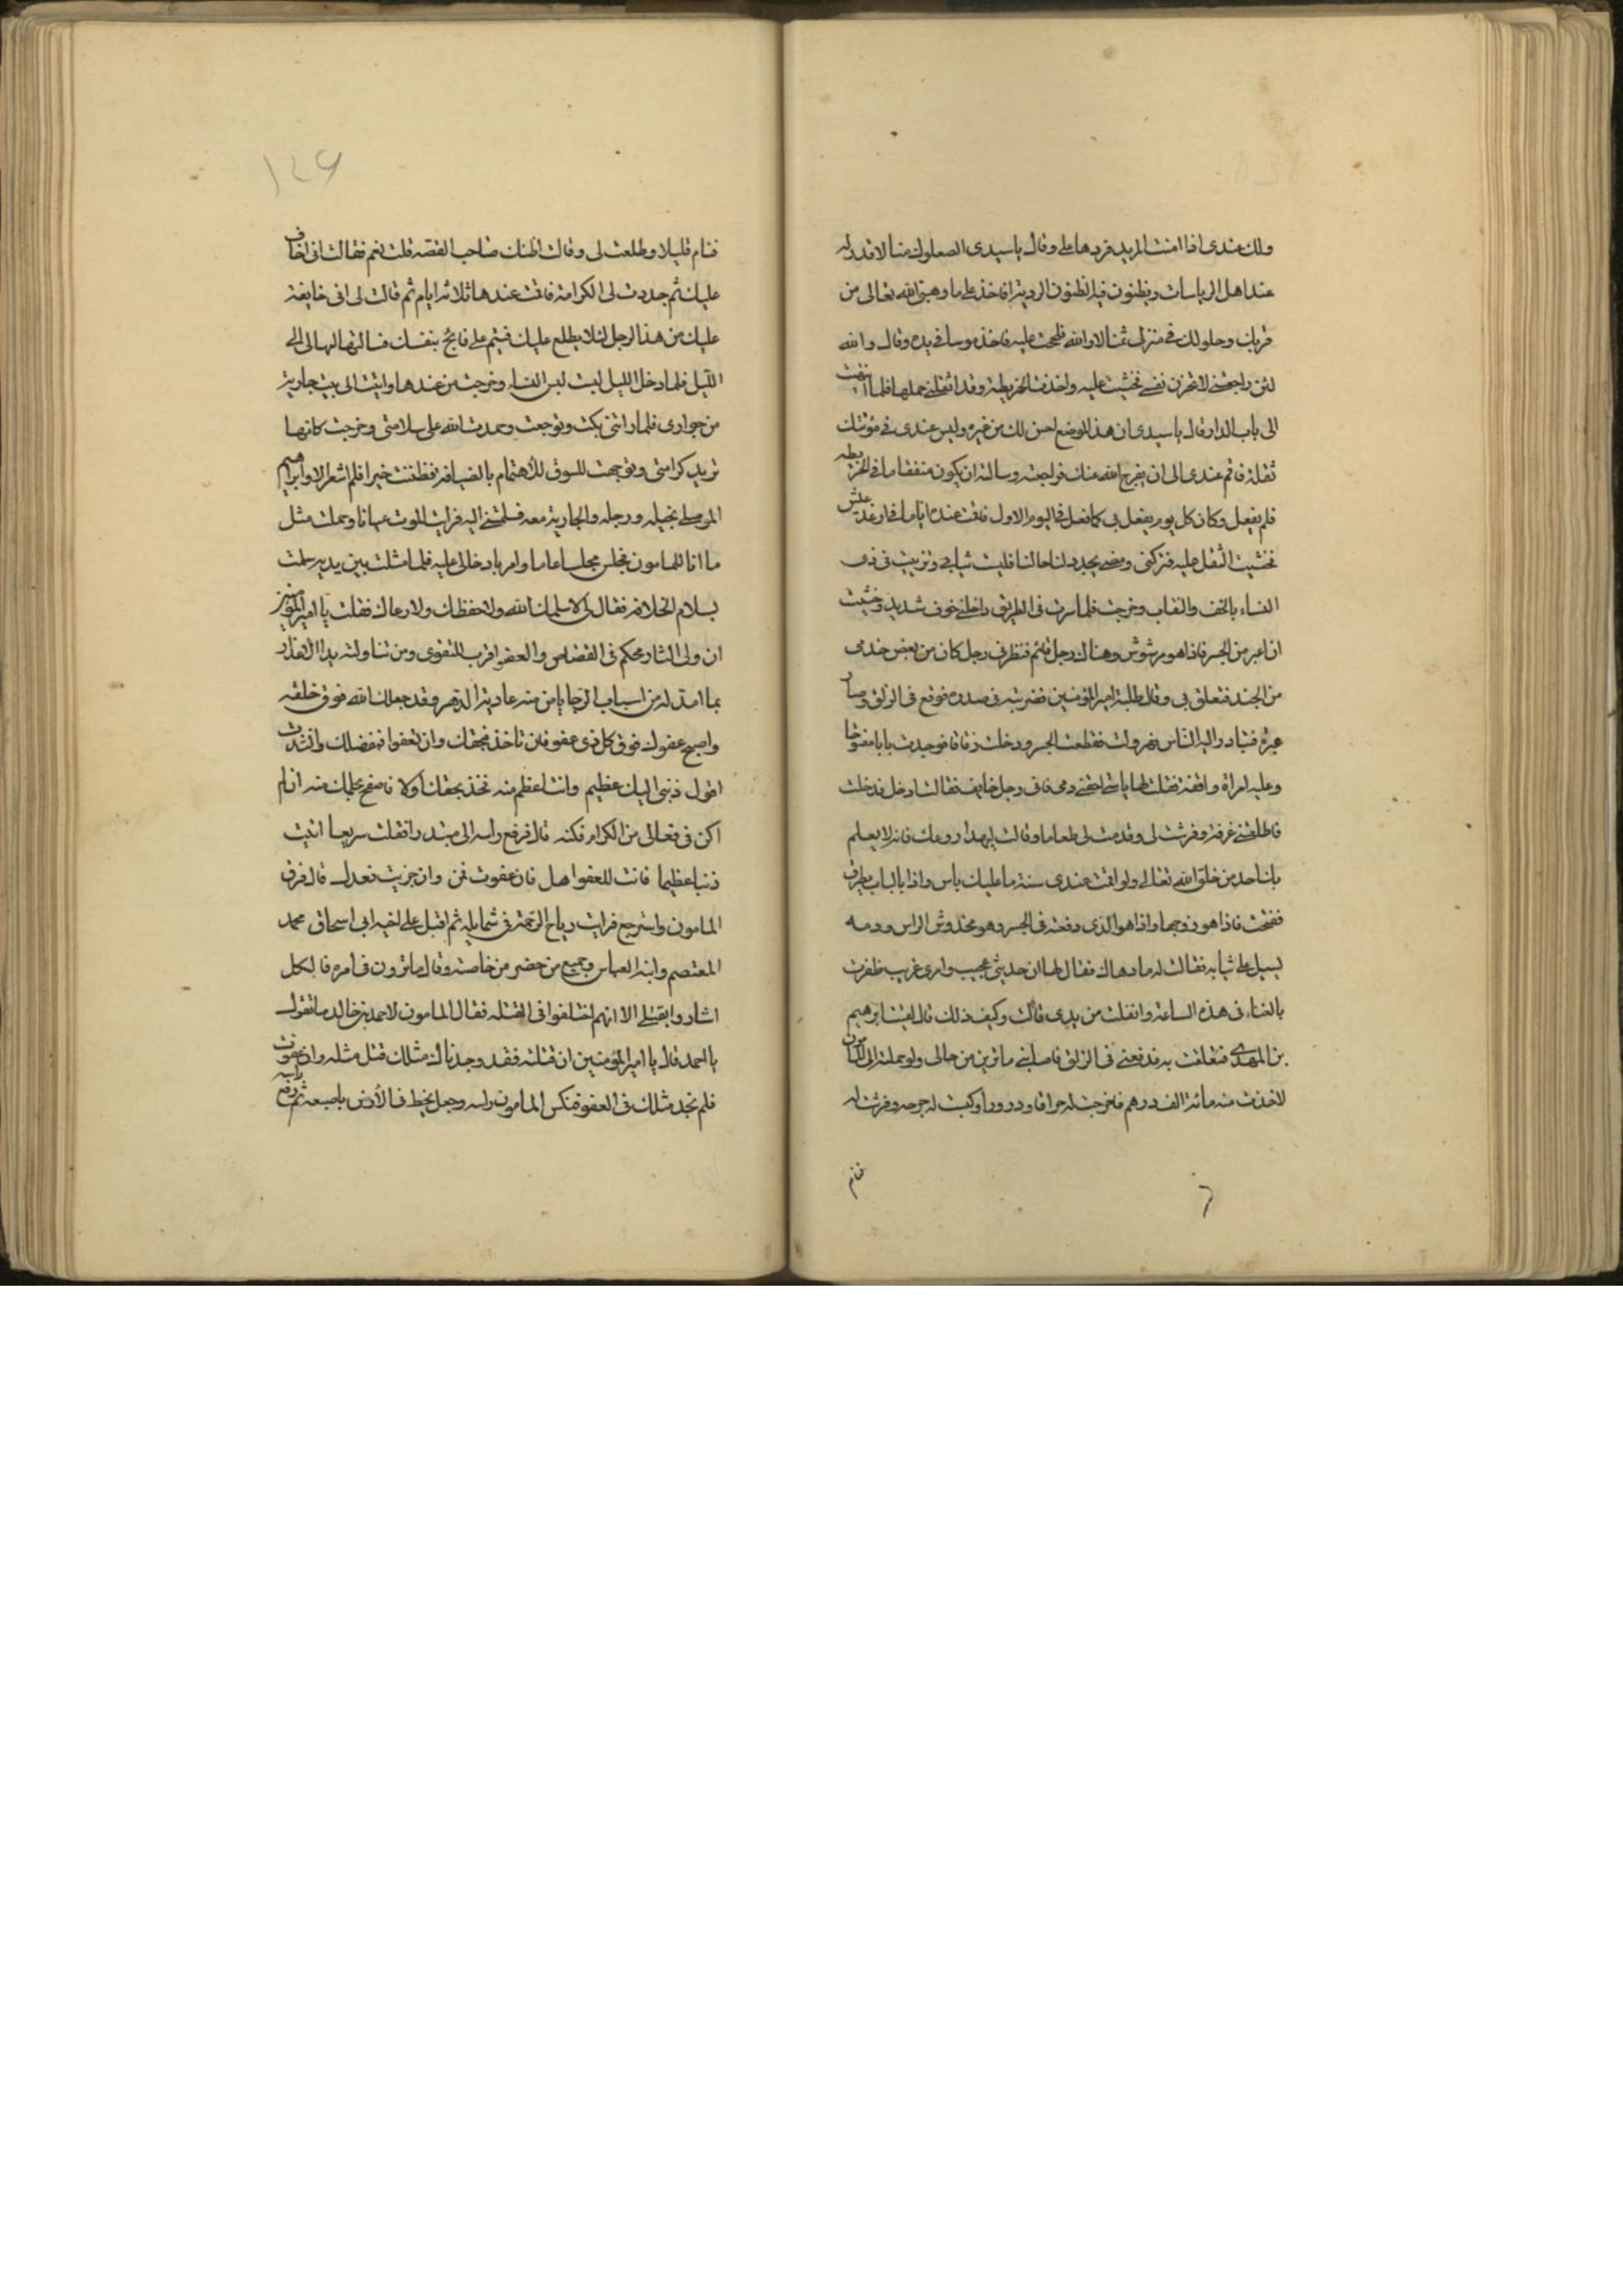 ولك عندى اذا امنت المزيد فردها على وقال ياسيدى الصعلوك منا لا قدر له
عند اهل الرياسات ويظنون فيه الظنون الردية افاخذ على ما وهبنى الله تعالى من
قربك وحلولك فى منزلى ثمنا لا والله فلححت عليه فاخذ موسا فى يده وقال والله
لئن راجعتنى لانحرن نفسى فخشيت عليه واخذت الخريطة وقد اثقلنى حملها فلما انتهيت
الى باب الدار قال ياسيدى ان هذا الموضع احسن لك من غيره وليس عندى فى مؤنتك
ثقلة فاقم عندى الى ان يفرج الله عنك فراجعته وسالته ان يكون منفقا ما فى الخريطه
فلم يفعل وكان كل يوم يفعل بى كما فعل فى اليوم الاول فاقت عنده اياما فى ارغد عيش
فخشيت التقل عليه فتركنى ومضى يجدد لنا حالنا فلبست ثيابى وتزينت فى زى
النساء بالخف والنقاب وخرجت فلما سرت فى الطريق داخلنى خوف شديد وخشيت
ان اعبر من الجسر فاذا هو مرشوش وهناك رجل قائم فنظرنى رجل كان من بعض خدمى
من الجند فتعلق بى وقال طلبة امير المؤمنين فضربته فى صدره فوقع فى الزلق وصار
عبرة فتبادر اليه الناس فهرولت فقطعت الجسر ودخلت زقاقا فوجدت بابا مفتوحا
وعليه امراة واقفة فقلت لها يا ستى احقنى دمى فانى رجل خايف فقالت ادخل فدخلت
فاطلعتنى غرفة وفرشت لى وقدمت لى طعاما وقالت ليهدا روعك فانه لا يعلم
بك احد من خلق الله تعالى ولو اقت عندى سنة ما عليك باس واذا بالباب يطرق
ففتحت فاذا هو زوجها واذا هو الذى دفعته فى الجسر وهو مخدوش الراس ودمه
يسيل على ثيابه فقالت له ما دهاك فقال لها ان حديثى عجيب وامرى غريب ظفرت
بالغناء فى هذه الساعة وانفلت من يدى قالت وكيف ذلك قال لقيت ابرهيم
بن المهدى فتعلقت به فدفعنى فى الزلق فاصابنى ما ترين من حالى ولو حملته الى المامون
لاخذت منه مائة الف درهم فاخرجت له حراقا ودرورا وكبت له جرحه وفرشت له
فنام
فنام قليلا وطلعت لى وقالت اظنك صاحب القصه قلت نعم فقالت انى اخاف
عليك ثم جددت لى الكرامة فاقت عندها ثلاثة ايام ثم قالت لى انى خايفة
عليك من هذا الرجل لئلا يطلع عليك فينم على فانج بنفسك فسالتها المهالة الى
الليل فلما دخل الليل لبست لبس النساء وخرجت من عندها واتيت الى بيت جارية
من جوارى فلما راتنى بكت وتوجعت وحمدت الله على سلامتى وخرجت كانها
تريد كرامتى وتوجهت للسوق للاهتمام بالضيافة فظننت خيرا فلم اشعر الا وابراهيم
الموصلى بخيله ورجله والجارية معه فسلمتنى اليه فرايت الموت عيانا وحملت مثل
ما انا للمامون فجلس مجلسا عاما وامر بادخالى عليه فلما مثلت بين يديه سلمت
بسلام الخلافة فقال لى لا سلمك الله ولا حفظك ولا رعاك فقلت يا امير المؤمنين
ان ولى الثار محكم فى القصاص والعفو اقرب للتقوى ومن تناولته يد الاقدار
بما امتد له من اسباب الرجا يامن منه عادية الدهر وقد جعلك الله فوق خلقه
واصبح عفوك فوق كل ذى عفو فان تاخذ فبحقك وان تعفوا فبفضلك وانشدت
اقول ذنبى اليك عظيم وانت اعظم منه فخذ بحقك اولا فاصفح بحلمك عنه ان لم
اكن فى فعالى من الكرام فكنه قال فرفع راسه الى مبتدرا فقلت سريعا اتيت
ذنبا عظيما فانت للعفو اهل فان عفوت فمن وان جزيت فعدل قال فرق
المامون واسترجع فرايت رياح الرحمة فى شمايله ثم اقبل على اخيه ابى اسحاق محمد
المعتصم وابنه العباس وجميع من حضر من خاصته وقال ما ترون فى امره فالكل
اشاروا بقتلى الا انهم اختلفوا فى القتله فقال المامون لاحمد بن خالد ما تقول
يا احمد قال يا امير المؤمنين ان قتلته فقد وجدنا لك مثلك قتل مثله وان عفوت
فلم نجد مثلك فى العفو فنكس المامون راسه وجعل يخط فى الارض باصبعه ثم رفع رأسه